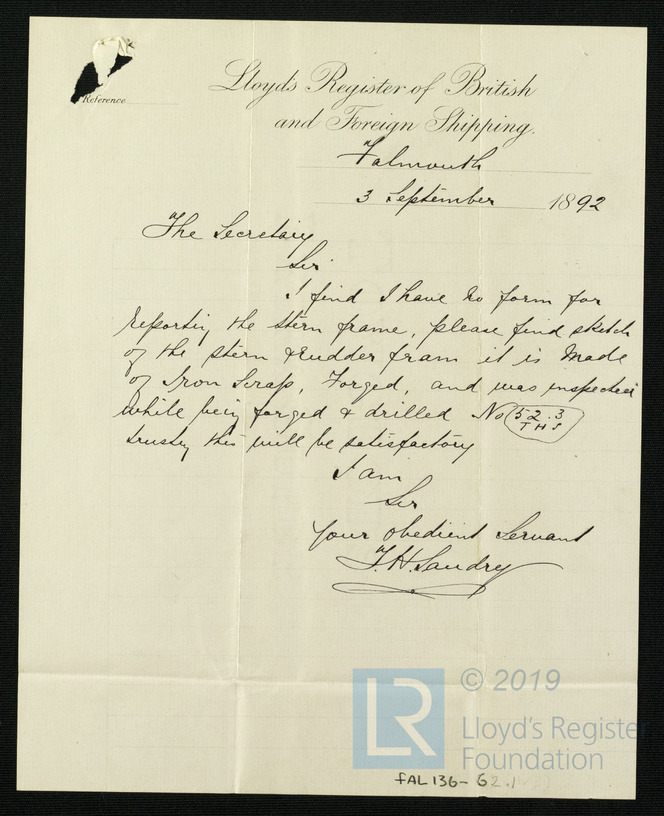 Reference
Lloyd's Register of British
and Foreign Shipping.
Falmouth
3 September 1892
The Secretary
Sir
I find I have no form for
reporting the stern frame, please find sketch
of the stern & rudder fram it is made
of Iron Scrap, Forged, and was inspected
while being forged & drilled No 52.3
T H S
trusting this will be satisfactory
I am
Sir
Your obedient Servant
T. H. Sandry
© 2019
LR
Lloyd's Register
Foundation
FAL136-62.1